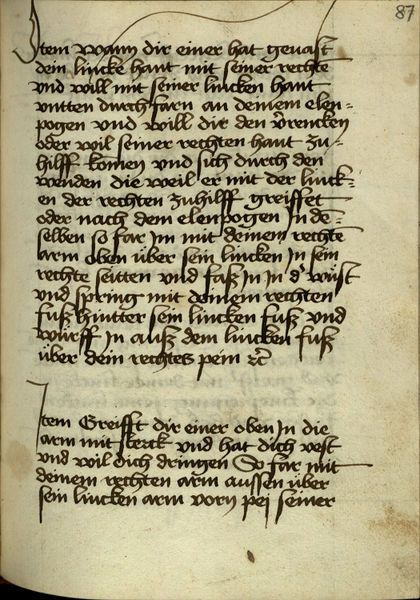 87
Item wann dir einer hat gevast
dein lincke hant mit seiner rechte
vnd will mit seiner lincken hant
vntten durch farn an deinem elen-
pogen vnd will dir den v̓rencken
oder wil seiner rechten hant zu-
hilff komen vnd sich durch den
wenden die weil er mit der linck-
en der rechten zuhilff greiffet
oder nach dem elenpogen In de-
selben so far Im mit deinem rechte
arm oben über sein lincken In sein
rechte seitten vnd faß In In d' wüst
vnd spring mit deinem rechten
fuß hintter sein lincken fuß vnd
würff In auß dem lincken fuß
über dein rechtes pein ꝛc̄
Item Greifft dir einer oben In die
arm mit sterck vnd hat dich vest
vnd wil dich dringen So far mit
deinem rechten arm aussen über
sein lincken arm vorn pej seiner